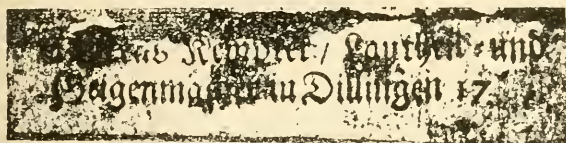 Kempter / Lauthen- und
Geigenmacher Dillingen 17